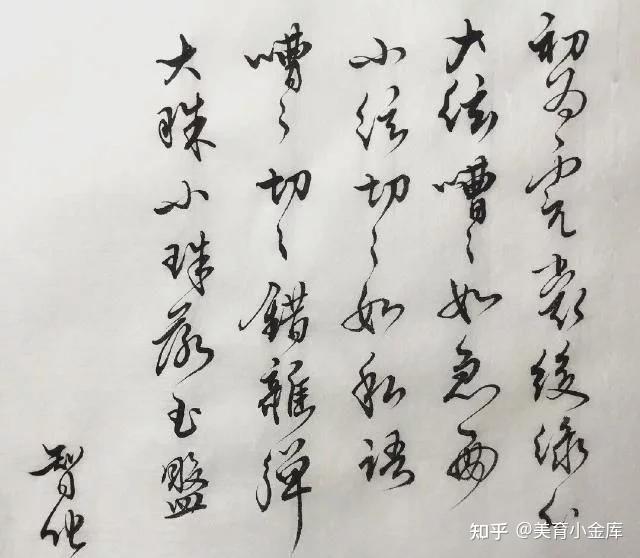 初為霓裳後綠幺
大弦嘈〻如急雨
小弦切〻如私語
嘈〻切〻錯雜彈
大珠小珠落玉盤
智
知乎 @美育小金库